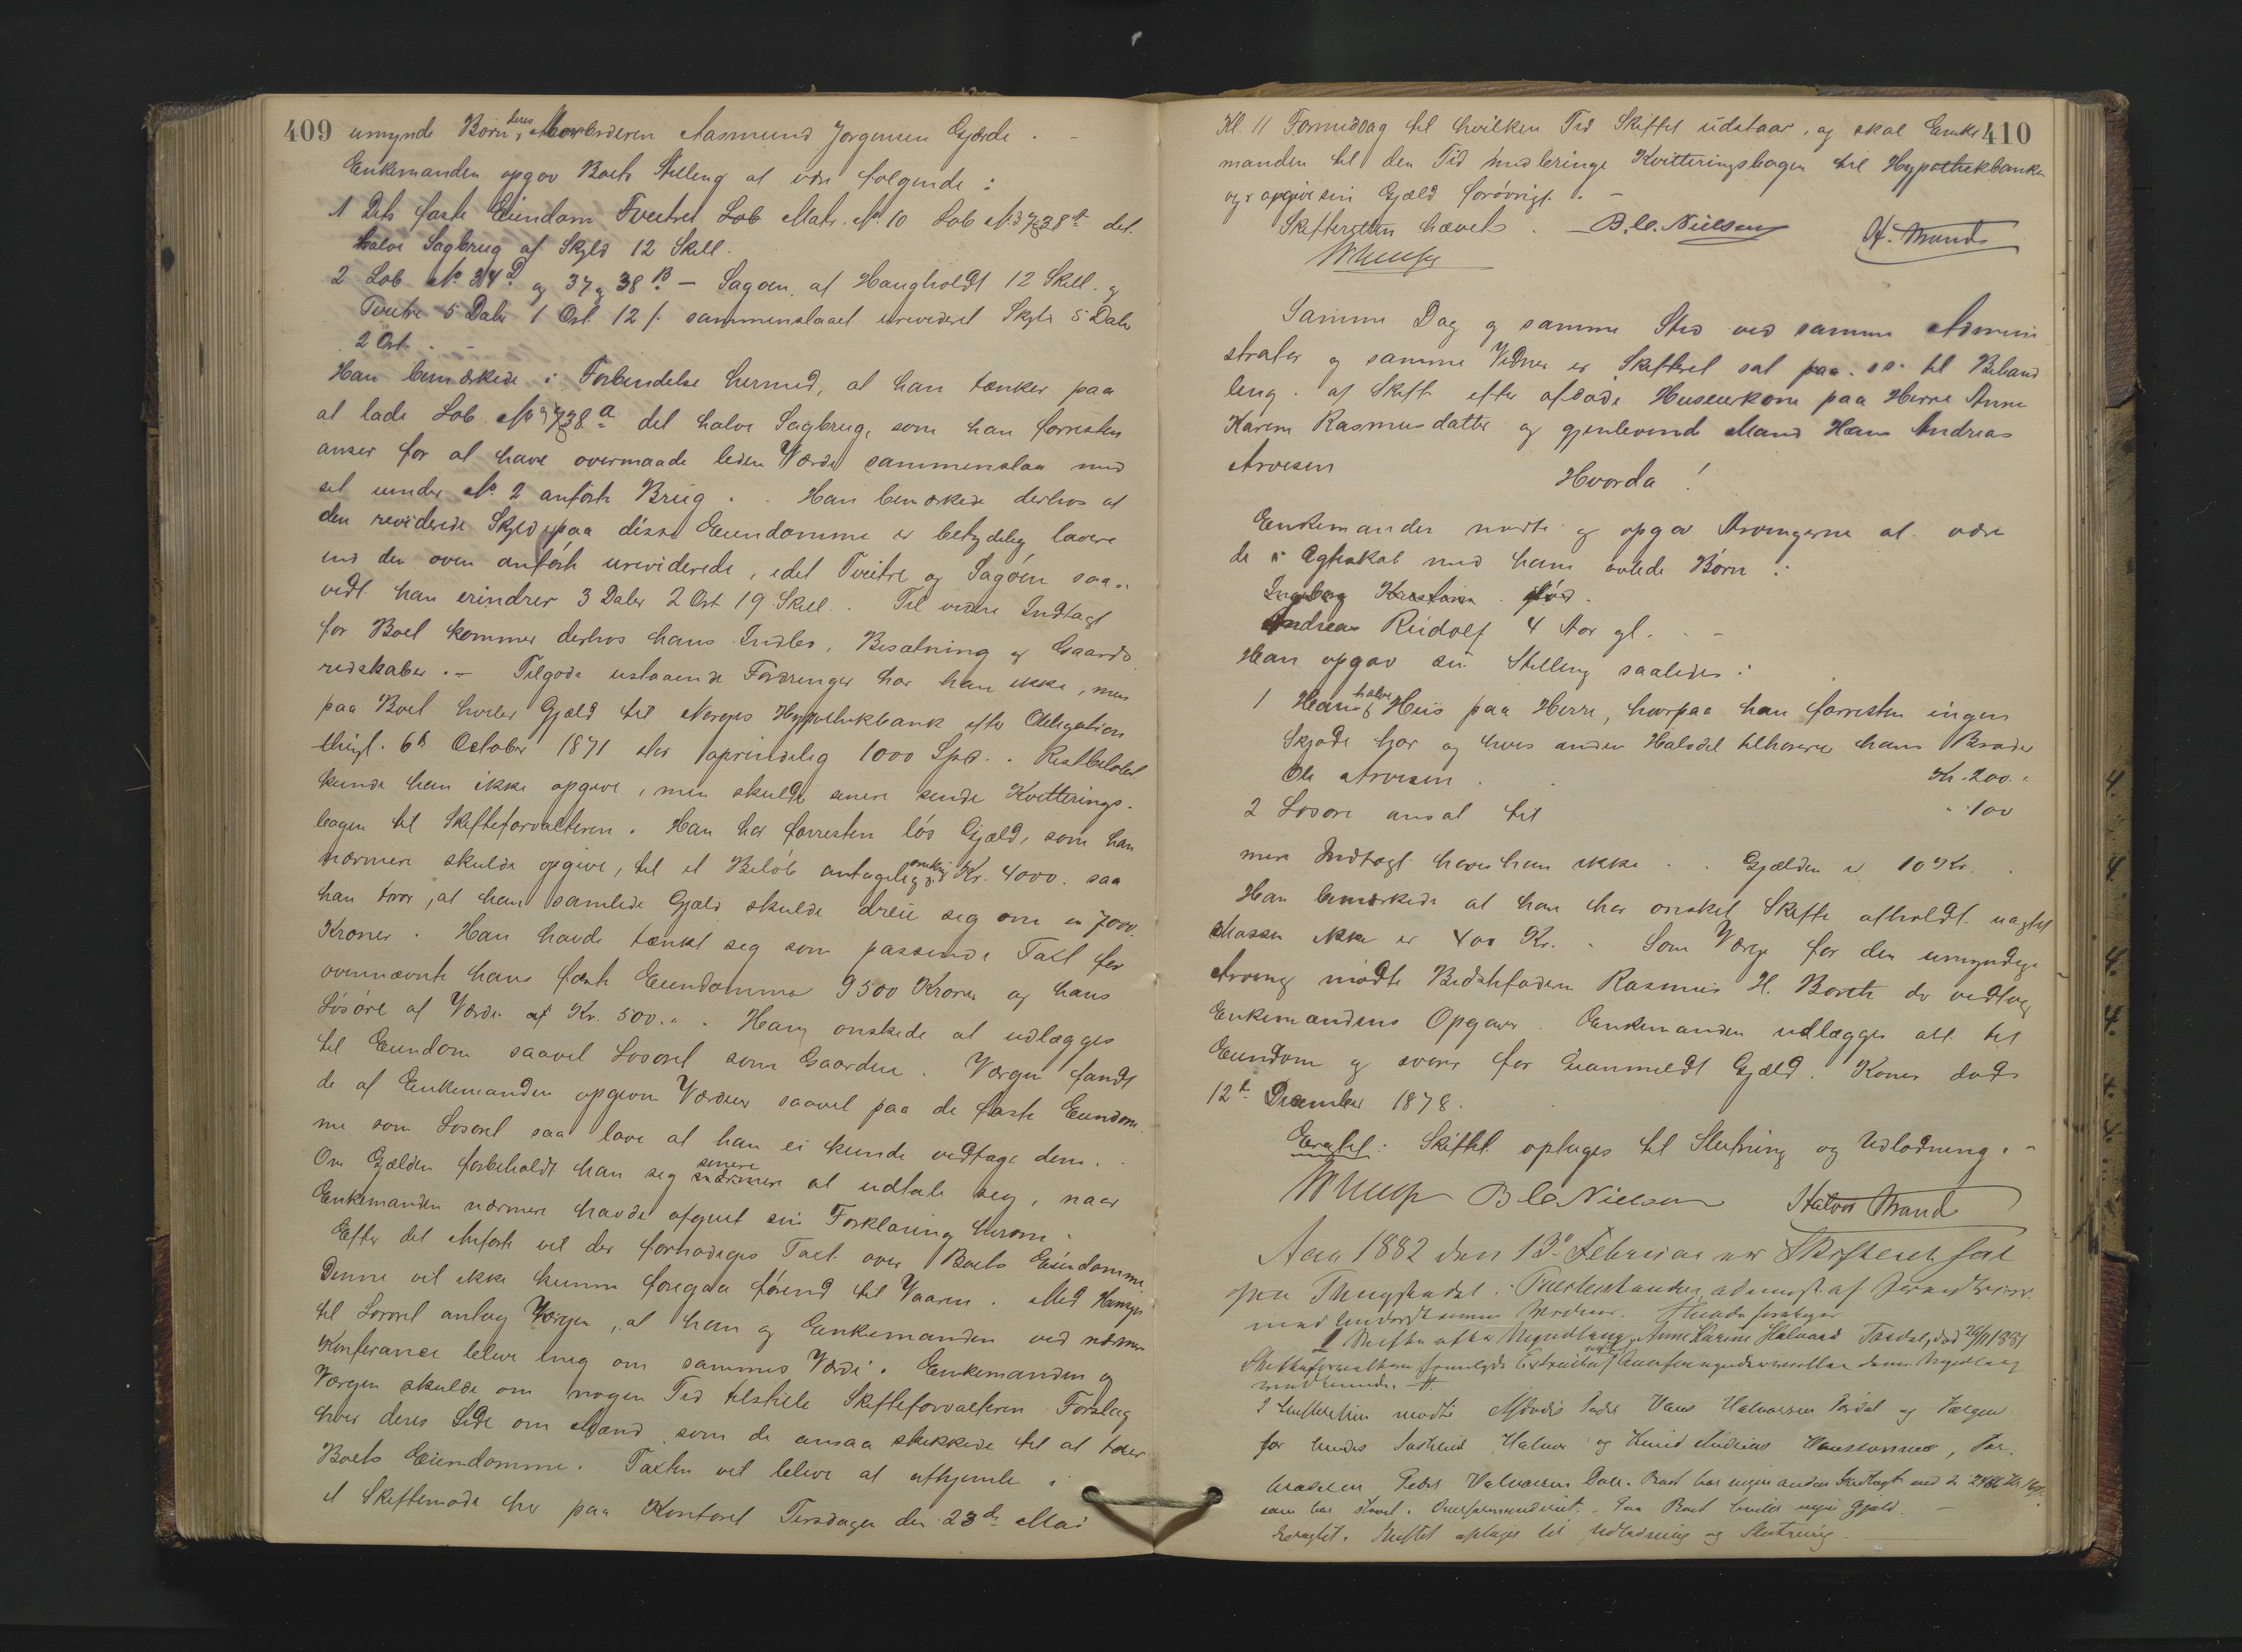 409
umynde Børn, deres Morbroderen Aasmund Jørgensen Gjærde . -
Enkemanden opgav Boets Stilling at være følgende :
1 Dets faste Eiendom Tveitret Løb Matr. No. 10 Løb No 37 & 38 a det
halve Sagbrug af Skyld 12 Skill.
2 Løb No. 34 og 37 og 38 B - Sagøen af Haugholdt 12 Skill. og
Tveitre 5 Daler 1 Ort 12 /. sammenslaaet urevideret Skyld 5 Daler
2 Ort . -
Han bemærkede i Forbindelse hermed, at han tænker paa
at lade Løb No 37 & 38 a det halve Sagbrug, som han forresten
anser for at have overmaade liden Værdi sammenslaa med
det under No. 2 anførte Brug . . Han bemærkede derhos at
den reviderede Skyld paa disse Eiendomme er betydelig lavere
end den oven anførte ureviderede, idet Tveitre og Sagøen saa-
vidt han erindrer 3 Daler 2 Ort 19 Skill . Til videre Indtægt
for Boet kommer derhos hans Indbo, Besætning og Gaards
redskaber . - Tilgode udstaaende Fordringer har han ikke, men
paa Boet hviler Gjæld til Norges Hypothekbank efter Obligation
thingl. 6te October 1871 stor oprindelig 1000 Spd. . Restbeløbet
kunde han ikke opgive, men skulde senere sende Kvitterings-
bogen til Skifteforvalteren . Han har forresten løs Gjæld, som han
nærmere skulde opgive, til et Beløb antagelig omkring Kr. 4000. saa
han tror, at hans samlede Gjæld skulde dreie sig om en 7000.
Kroner . Han havde tænkt sig som passende Taxt for
ovennævnte hans faste Eiendomme 9500 Kroner og hans
Løsøre af Værdi af Kr. 500. " . Han ønskede at udlægges
til Eiendom saavel Løsøret som Gaarden . Værgen fandt
de af Enkemanden opgivne Værdier saavel paa de faste Eiendom
me som Løsøret saa lave at han ei kunde vedtage dem .
Om Gjælden forbeholdt han sig senere nærmere at udtale sig, naar
Enkemanden nærmere havde afgivet sin Forklaring herom .
Efter det Anførte vil der fornødiges Taxt over Boets Eiendomme
Denne vil ikke kunne foregaa førend til Vaaren . Med Hensyn
til Løsøret antog Værgen, at han og Enkemanden ved nærmere
Konferance bliver enig om sammes Værdi . Enkemanden og
Værgen skulde om nogen Tid tilstille Skifteforvalteren Forslag
hver deres Side om Mænd som de ansaa skikkede til at taxere
Boets Eiendomme . Taxten vil blive at afhjemle i
et Skiftemøde her paa Kontoret Tirsdagen den 23de Mai
410
Kl. 11 Formiddag til hvilken Tid Skiftet udstaar, og skal Enke
manden til den Tid medbringe Kvitteringsbogen til Hypothekbanken
og opgive sin Gjæld forøvrigt . -
Skifteretten hævet . B. C. Nielsen H. Strand
Samme Dag og samme Sted ved samme Admini
strator og samme Vidner er Skifteret sat til Behand
ling af Skifte efter afdøde Husmerkone paa Herre Anne
Karine Rasmusdatter og gjenlevende Mand Hans Andreas
Arvesen
Hvorda !
Enkemanden mødte og opgav Arvingerne at være
de i Ægteskab med ham avlede Børn :
Ingeborg Kristine . død .
Andreas Rudolf 4 Aar gl. . -
Han opgav sin Stilling saaledes :
1 Hans halve Hus paa Herre, hvorpaa han forresten ingen
Skjøde har og hvis anden Halvdel tilhører hans Broder
Ole Arvesen . Kr. 200. "
2 Løsøre ansat til " 100
mere Indtægt haves ham ikke . . Gjælden er 10 Kr. .
Han bemærkede at han har ønsket Skifte afholdt uagtet
Massen ikke er 400 Kr. . Som Værge for den umyndige
Arving mødte Bedstefaderen Rasmus H. der vedtog
Enkemandens Opgaver . Enkemanden udlægges alt til
Eiendom og svarer for uanmeldt Gjæld . Konen døde
12te December 1878 .
Eragtet . Skiftet optages til Slutning og Udlodning . -
B C Nielsen Halvor Strand
Aar 1882 den 13. Februar er Skifteret sat
paa Thingstedet
med undertegnede Vidner . Hvorda foretoges
1 Skifte efter Anne Karine Halvors død 29/11 1881
I Skifteretten mødte Afdødes Fader Hans Halvorsen og Værgen
for hendes Halvor og Knud Andreas Hanssønner, Far
broderen Peder Halvorsen . Boet har ingen anden Indtægt end
. Paa Boet hviler ingen Gjæld . -
Eragtet . Skiftet optages til Udlodning og Slutning .